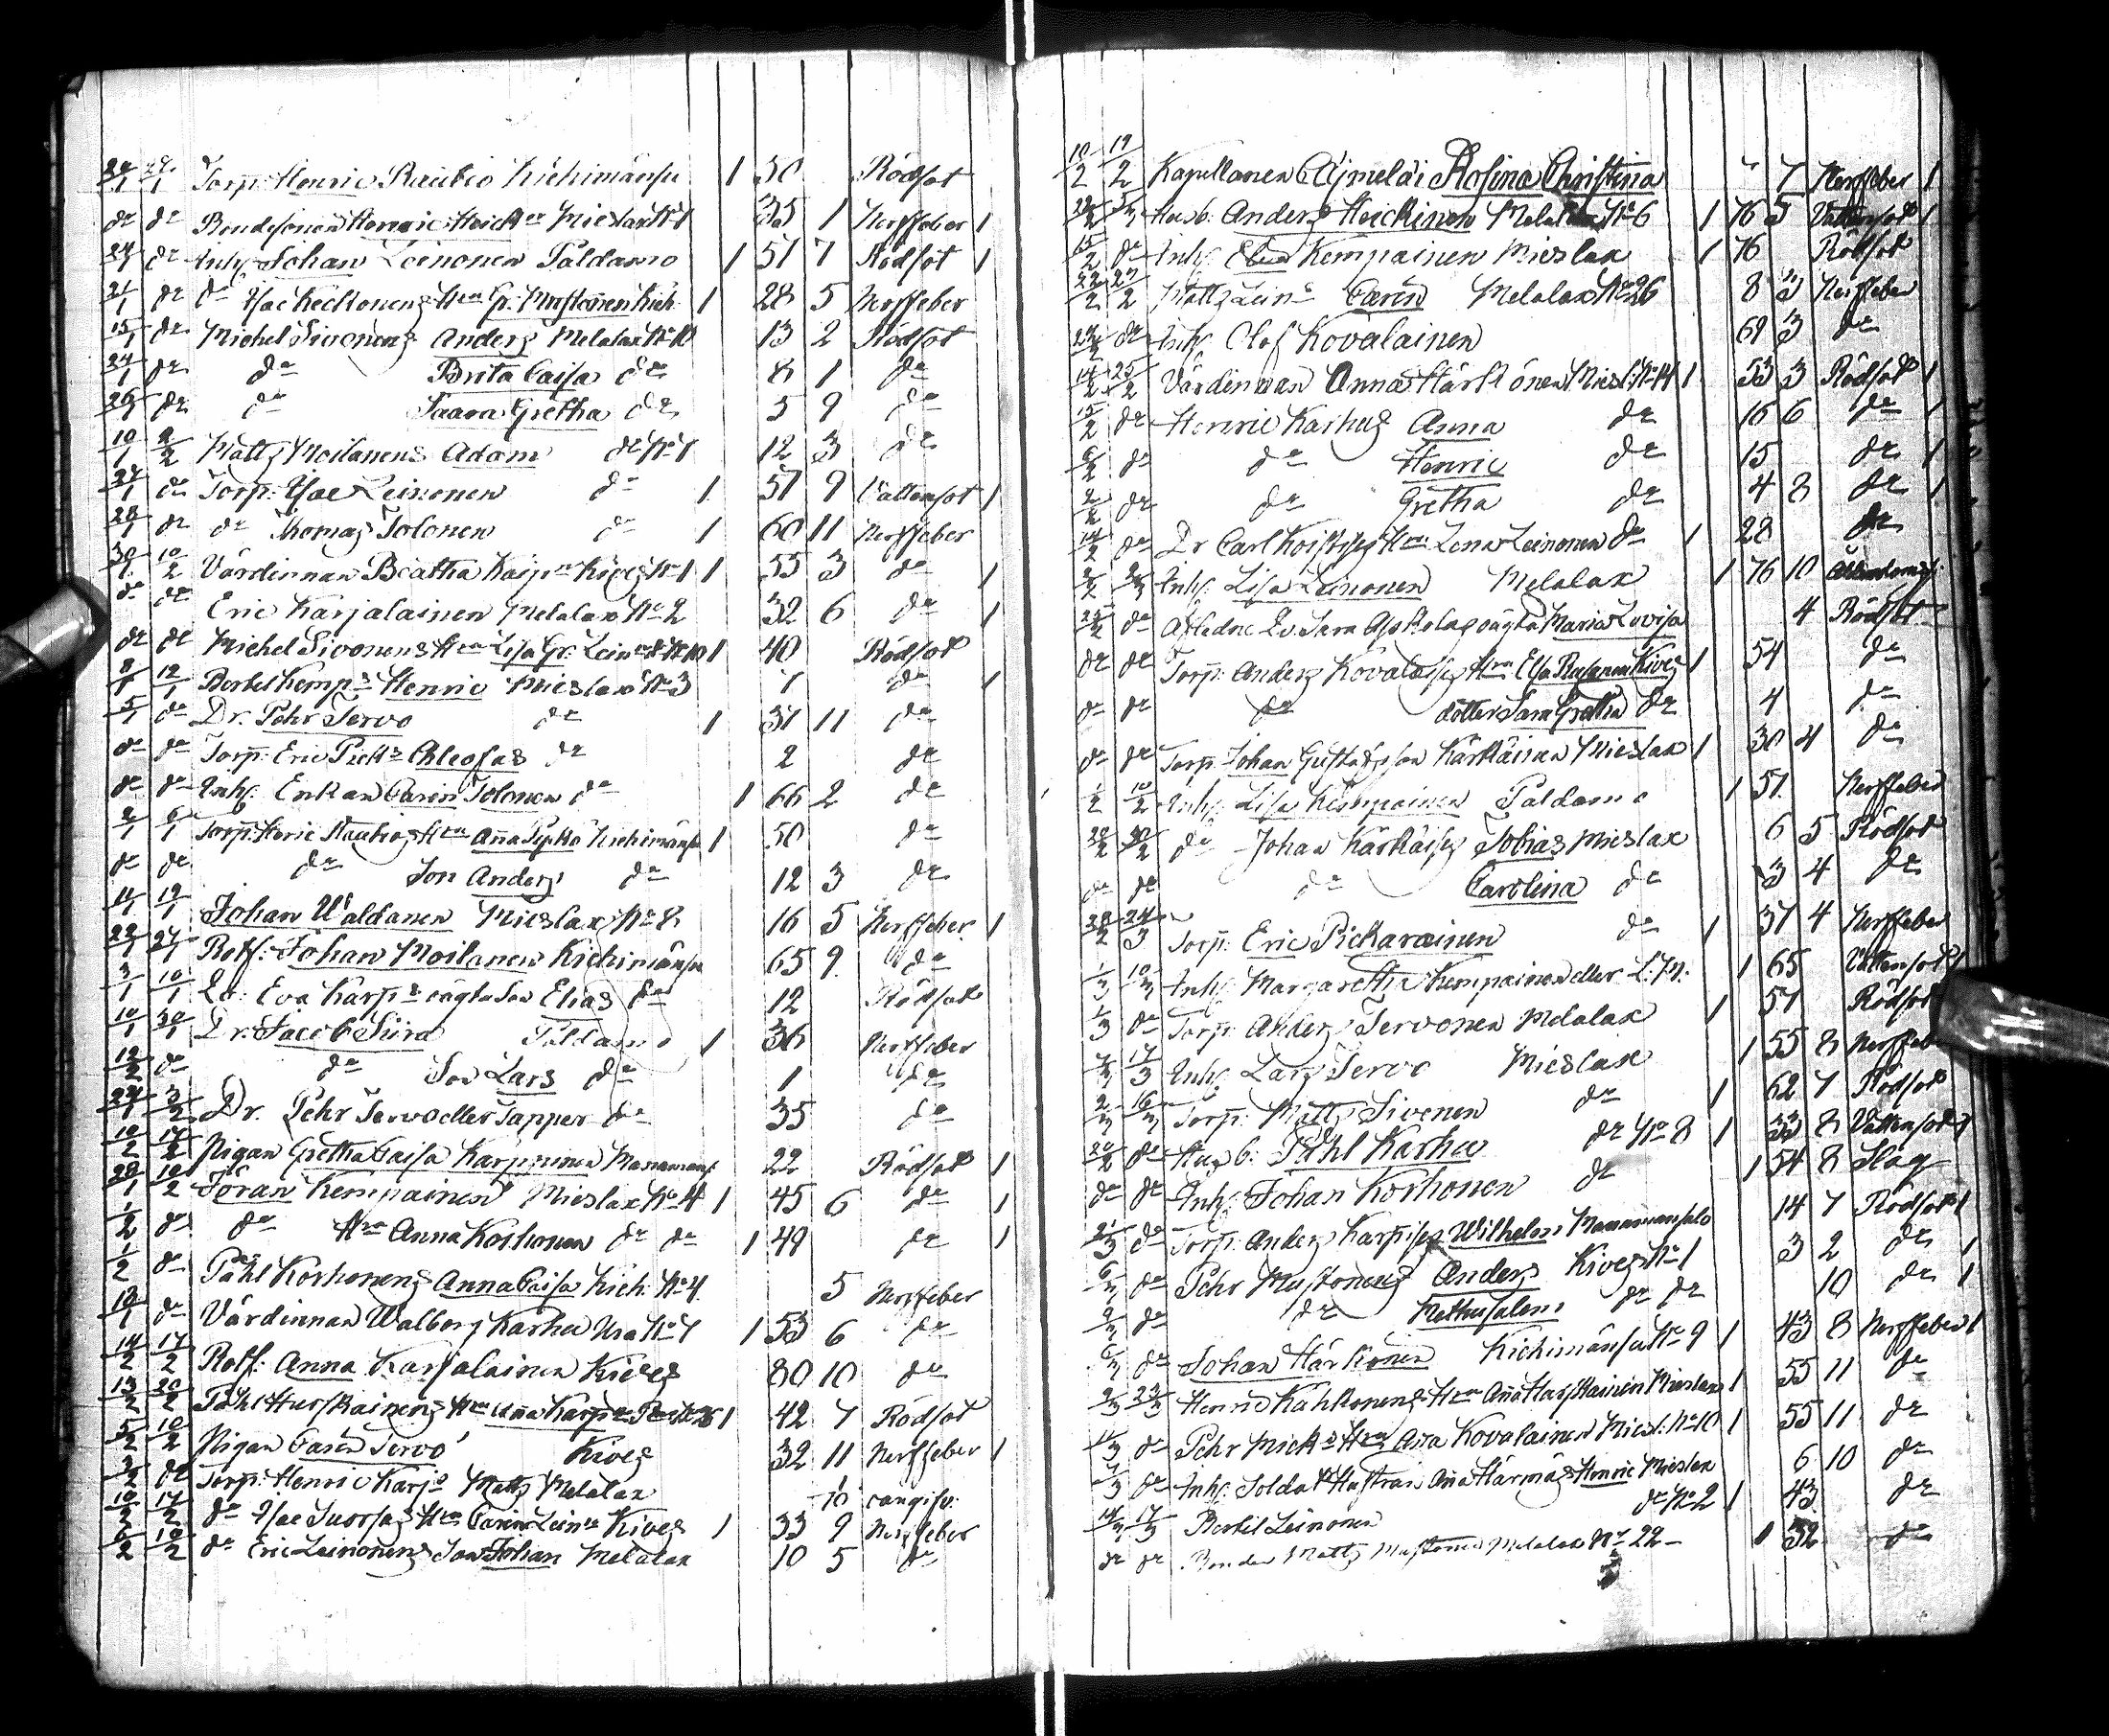 24/1 27/1 Torp: Henric Raubio Kichimänsu 1 50 Rödsot
do do Bondesonen Henric Heick:n Mieslax No 1 35 1 Nerffeber 1
24/1 do Inh: Johan Leinonen Paldamo 1 51 7 Rödsot 1
21/1 do do Isac Keckonens H:u G. Mustonen Kich: 1 28 5 Nerffeber
15/1 do Michel Sivonens Anders Melalax No 10 13 2 Rödsot
24/1 do do Brita Caisa do 8 1 do
26/1 do do Saara Gretha do 5 9 do
10/1 2/2 Matts Moilanens Adam do No 1 12 3 do
27/1 do Torp: Isac Leinonen do 1 51 9 Vattensot 1
28/1 do do Thomas Tolonen do 1 60 11 Nerffeber
30/1 10/2 Värdinnan Beatha Kaip:n Kives No 1 1 55 3 do 1
do do Eric Karjalainen Melalax No 2 32 6 do 1
do do Michel Sivonens H:u Lisa Gr. Lein:n No 10 1 40 Rödsot
8/1 12/1 Bertel Kemp:s Henric Mieslax No 3 7 do 1
5/1 do Dr. Pehr Tervo do 1 31 11 do
do do Torp: Eric Pick:s Chleofas do 2 do
do do Inh: Enkan Carin Tolonen do 1 66 2 do
2/1 6/1 Torp: Henric Raubios H:u Aña Kichimänsu 1 50 do
do do do Son Anders do 12 3 do
11/1 19/1 Johan Waldanen Mieslax No 8 16 5 Nerffeber 1
22/1 27/1 Rotf: Johan Moilanen Kichimänsu 65 9 do
3/1 10/1 Lö: Eva Karp:s oägta Son Elias do 12 Rödsot
10/1 30/1 Dr. Jacob Siira Paldamo 1 36 Nerffeber
12/2 do do Son Lars do 1 do
24/1 3/2 Dr. Pehr Tervo eller Tapper do 35 do
10/2 17/2 Pigan Gretha Caisa Karppinen Manamans: 22 Rödsot 1
28/1 10/2 Göran Kempainen Mieslax No 4 1 45 6 do 1
1/2 do do H:u Anna Korhonen do do 1 49 do 1
1/2 do Påhl Korhonens Anna Caisa Kich: No 4 5 Nerffeber
10/1 do Värdinnan Walborg Karhu No 7 1 53 6 do
14/2 17/2 Rotf: Anna Karjalainen Kives 80 10 do
13/2 20/2 Påhl Hurskainens H:u Aña Karp:n 1 42 7 Rödsot
5/2 10/2 Pigan Carin Tervo Kives 32 11 Nerffeber 1
3/2 do Torp: Henric Karj:s Matts Melalax 10 oangifv:
10/2 17/2 do Isac Suorsas H:u Caren Lein:n Kives 1 33 9 Nerffeber
6/2 10/2 do Eric Leinonens Son Johan Melalax 10 5 do
10/2 19/2 Kapellanen Ajmelæi Rosina Christina 7 Nerffeber 1
Husb: Anders Heickinen Melalax No 6 1 76 5 Vattensot 1
15/2 do Inh: Kempainen Mieslax 1 76 Rödsot
22/2 27/2 Matts Lein:s Carin Melalax No 26 8 3 Nerffeber
24/2 do Inh: Olof Kovalainen 69 3 do
14/2 25/2 Värdinnan Anna Härkönen Miesl: No 14 1 53 3 Rödsot 1
15/2 do Henric Karhus Anna do 16 6 do 1
6/2 do do Henric do 15 do 1
2/2 do do Gretha do 4 8 do 1
14/2 do Dr Carl Koistises H:u Lena Leinonen do 1 28 do
Inh: Lisa Leinonen Melalax 1 76 10
25/2 do Afledne Lö: Sara oägta Maria Lovisa 4 Rödsot
do do Torp: Anders Kovalaises H:u Elsa Kives 1 54 do
do do do dotter Sara Gretha do 4 do
do do Torp: Johan Gustafsson Kärkäinen Mieslax 1 30 4 do
1/2 10/2 Inh: Lisa Kempainen Paldamo 1 51 Nerffeber
do Johan Kärkäises Tobias Mieslax 6 5 Rödsot
do do do Carolina do 3 4 do
28/2 24/3 Torp: Eric Pickarainen do 1 37 4 Nerffeber
1/3 10/3 Inh: Margaretha Kempainen eller 1 65 Vattensot
1/3 do Torp: Anders Tervonen Melalax 1 51 Rödsot
17/3 Inh: Lars Tervo Mieslax 1 55 8 Nerffeber
2/3 16/3 Torp: Matts Sivonen do 1 62 7 Rödsot
20/2 do Husb: Påhl Karhu do No 8 1 33 8 Vattensot 1
do do Inh: Johan Korhonen do 1 54 8 Slag
2/3 do Torp: Anders Karpises Wilhelm Manamansalo 14 7 Rödsot 1
6/3 do Pehr Mustonens Anders Kives No 1 3 2 do 1
2/3 do do Methusalem do do 10 do 1
6/3 do Johan Härkönen Kichimänsu No 9 1 43 8 Nerffeber 1
2/3 23/3 Henric Kähkönens H:u Aña Hurskainen Mieslax 1 55 11 do
11/3 do Pehr Mick:s H:u Aña Kovalainen Miesl: No 10 1 55 11 do
1/3 do Inh: Soldat Hustrun Aña Härmäs Henric Mieslax 6 10 do
14/3 17/3 Bertil Leinonen do No 2 1 43 do
do do Bonden Matts Mustonen Melalax No 22 1 32 do